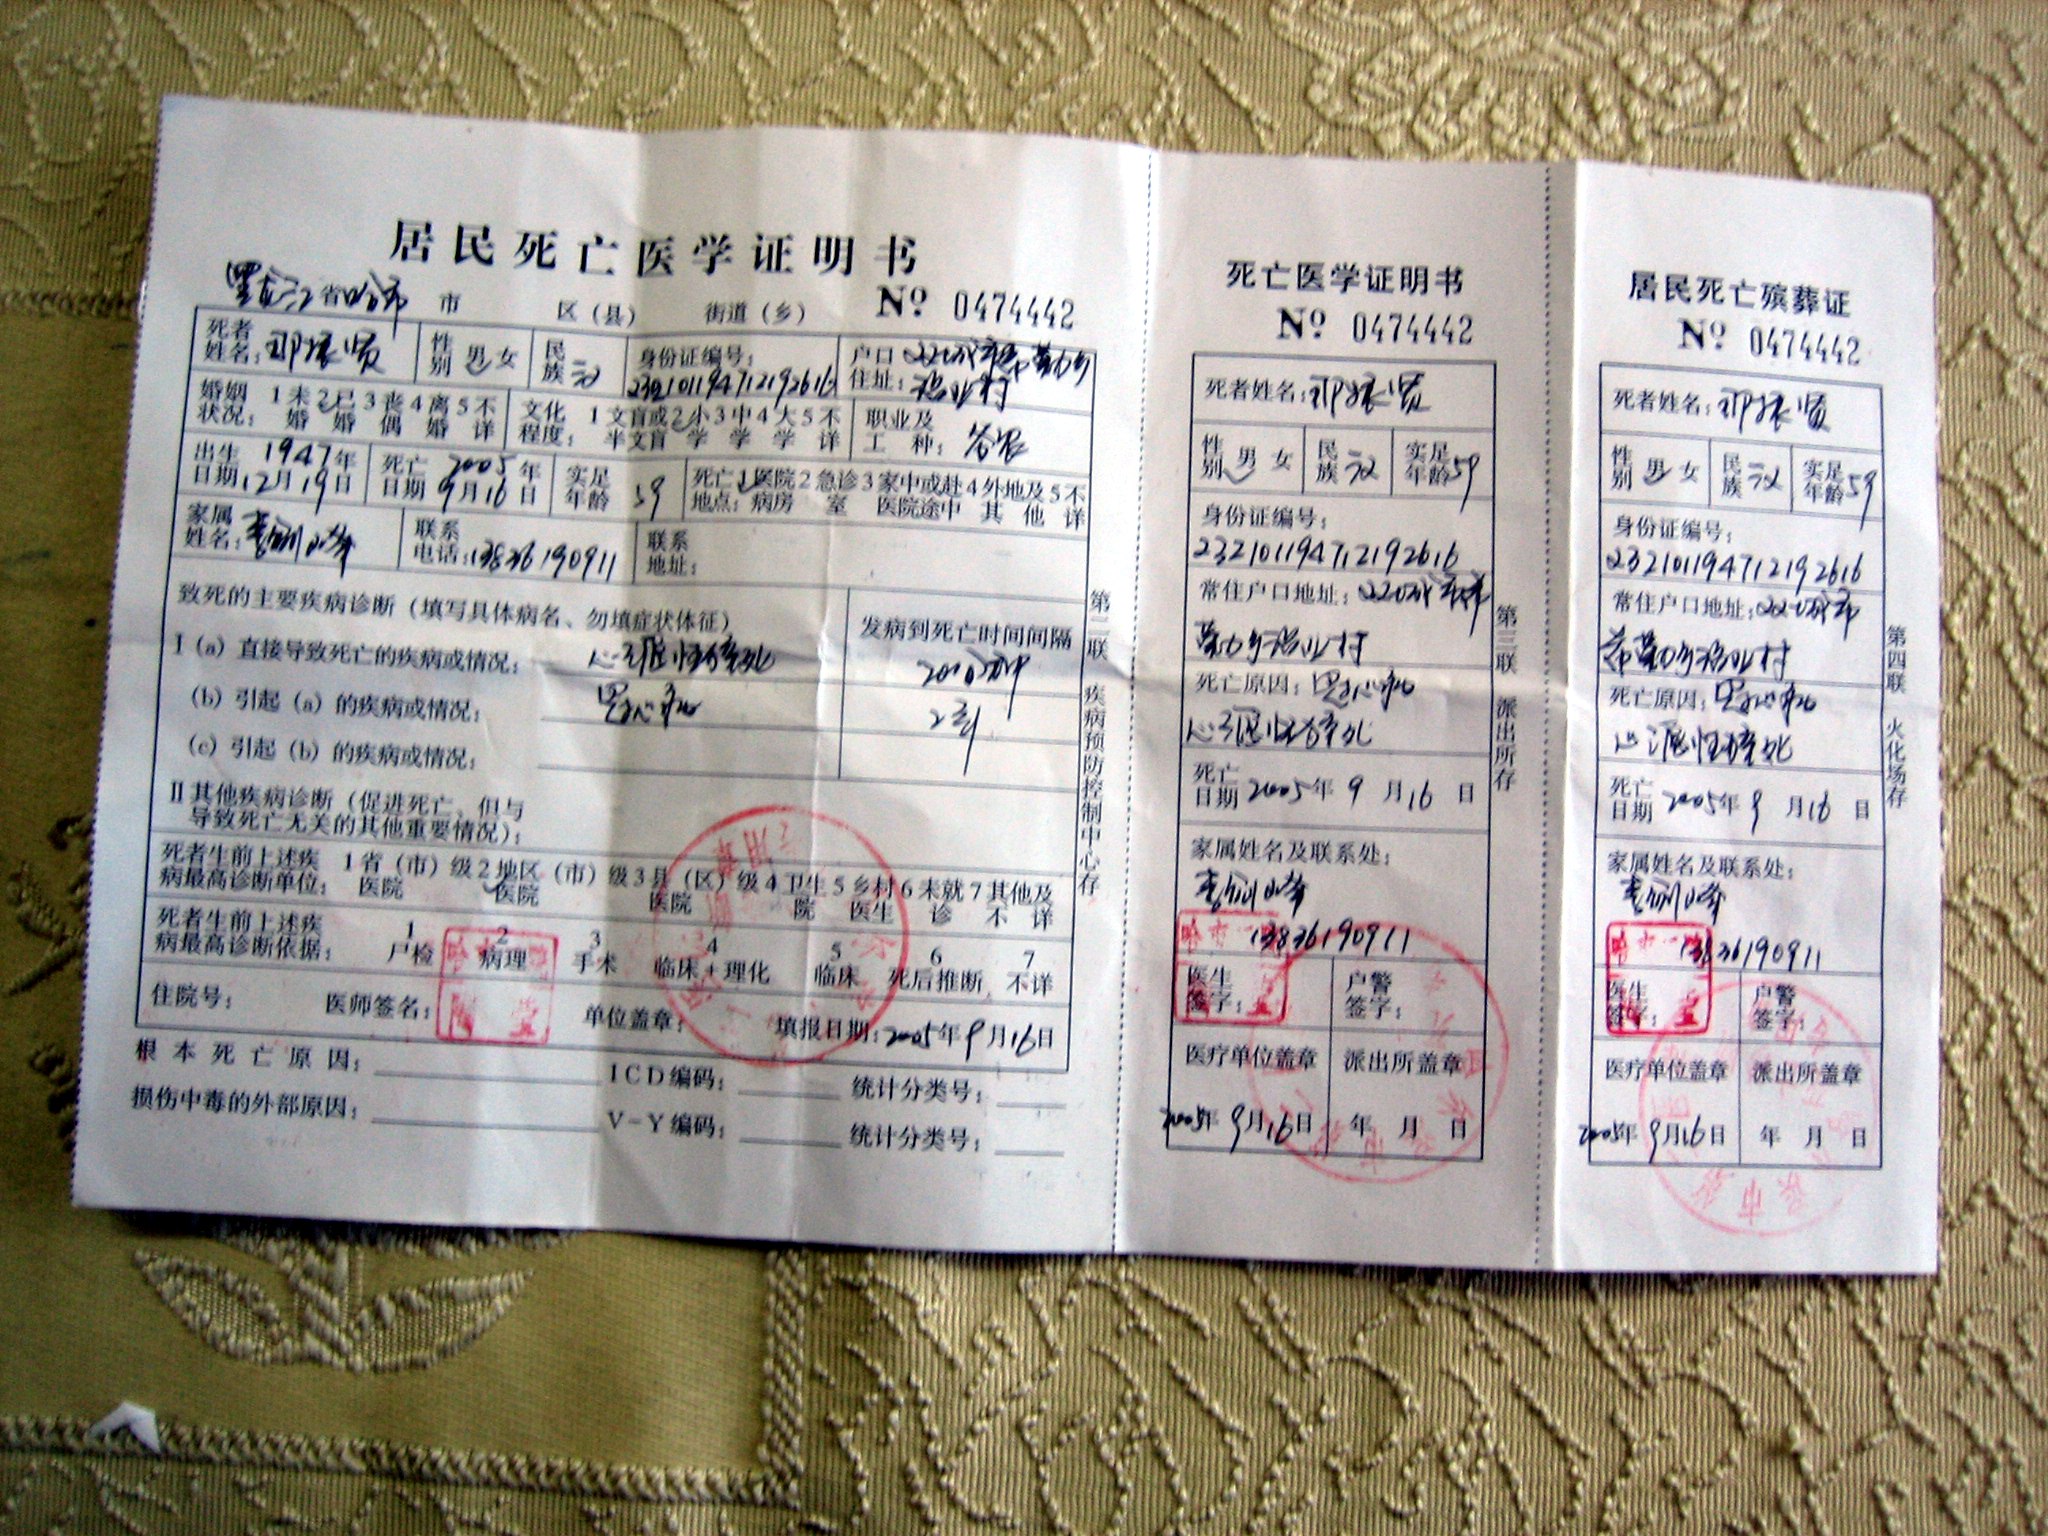 居民死亡医学证明书
黑龙江省哈市 市 区（县） 街道（乡） No 0474442
死者姓名： 振贤 性别 男 女 民族 汉 身份证编号：232101194712192616 户口住址： 村
婚姻状况： 1未婚 2已婚 3丧偶 4离婚 5不详 文化程度： 1文盲或半文盲 2小学 3中学 4大学 5不详 职业及工种： 务农
出生日期 1947年12月19日 死亡日期 2005年9月16日 实足年龄 59 死亡地点： 1医院病房 2急诊室 3家中或赴医院途中 4外地及其他 5不详
家属姓名： 联系电话：13836190911 联系地址：
致死的主要疾病诊断（填写具体病名、勿填症状体征） 发病到死亡时间间隔
I（a）直接导致死亡的疾病或情况： 心源性猝死
（b）引起（a）的疾病或情况：
（c）引起（b）的疾病或情况：
II 其他疾病诊断（促进死亡，但与
导致死亡无关的其他重要情况）：
死者生前上述疾病最高诊断单位： 1省（市）级医院 2地区（市）级医院 3县（区）级医院 4卫生院 5乡村医生 6未就诊 7其他及不详
死者生前上述疾病最高诊断依据： 1尸检 2病理 3手术 4临床+理化 5临床 6死后推断 7不详
住院号： 医师签名： 单位盖章： 填报日期：2005年9月16日
根本死亡原因： ICD编码： 统计分类号：
损伤中毒的外部原因： V-Y编码： 统计分类号：
第二联 疾病预防控制中心存
死亡医学证明书
No 0474442
死者姓名： 振贤
性别 男 女 民族 汉 实足年龄 59
身份证编号：
232101194712192616
常住户口地址：
村
死亡原因：
心源性猝死
死亡日期 2005年9月16日
家属姓名及联系处：
13836190911
医生签字： 户警签字：
医疗单位盖章 派出所盖章
2005年9月16日 年 月 日
第三联 派出所存
居民死亡殡葬证
No 0474442
死者姓名： 振贤
性别 男 女 民族 汉 实足年龄 59
身份证编号：
232101194712192616
常住户口地址：
村
死亡原因：
心源性猝死
死亡日期 2005年9月16日
家属姓名及联系处：
13836190911
医生签字： 户警签字：
医疗单位盖章 派出所盖章
2005年9月16日 年 月 日
第四联 火化场存